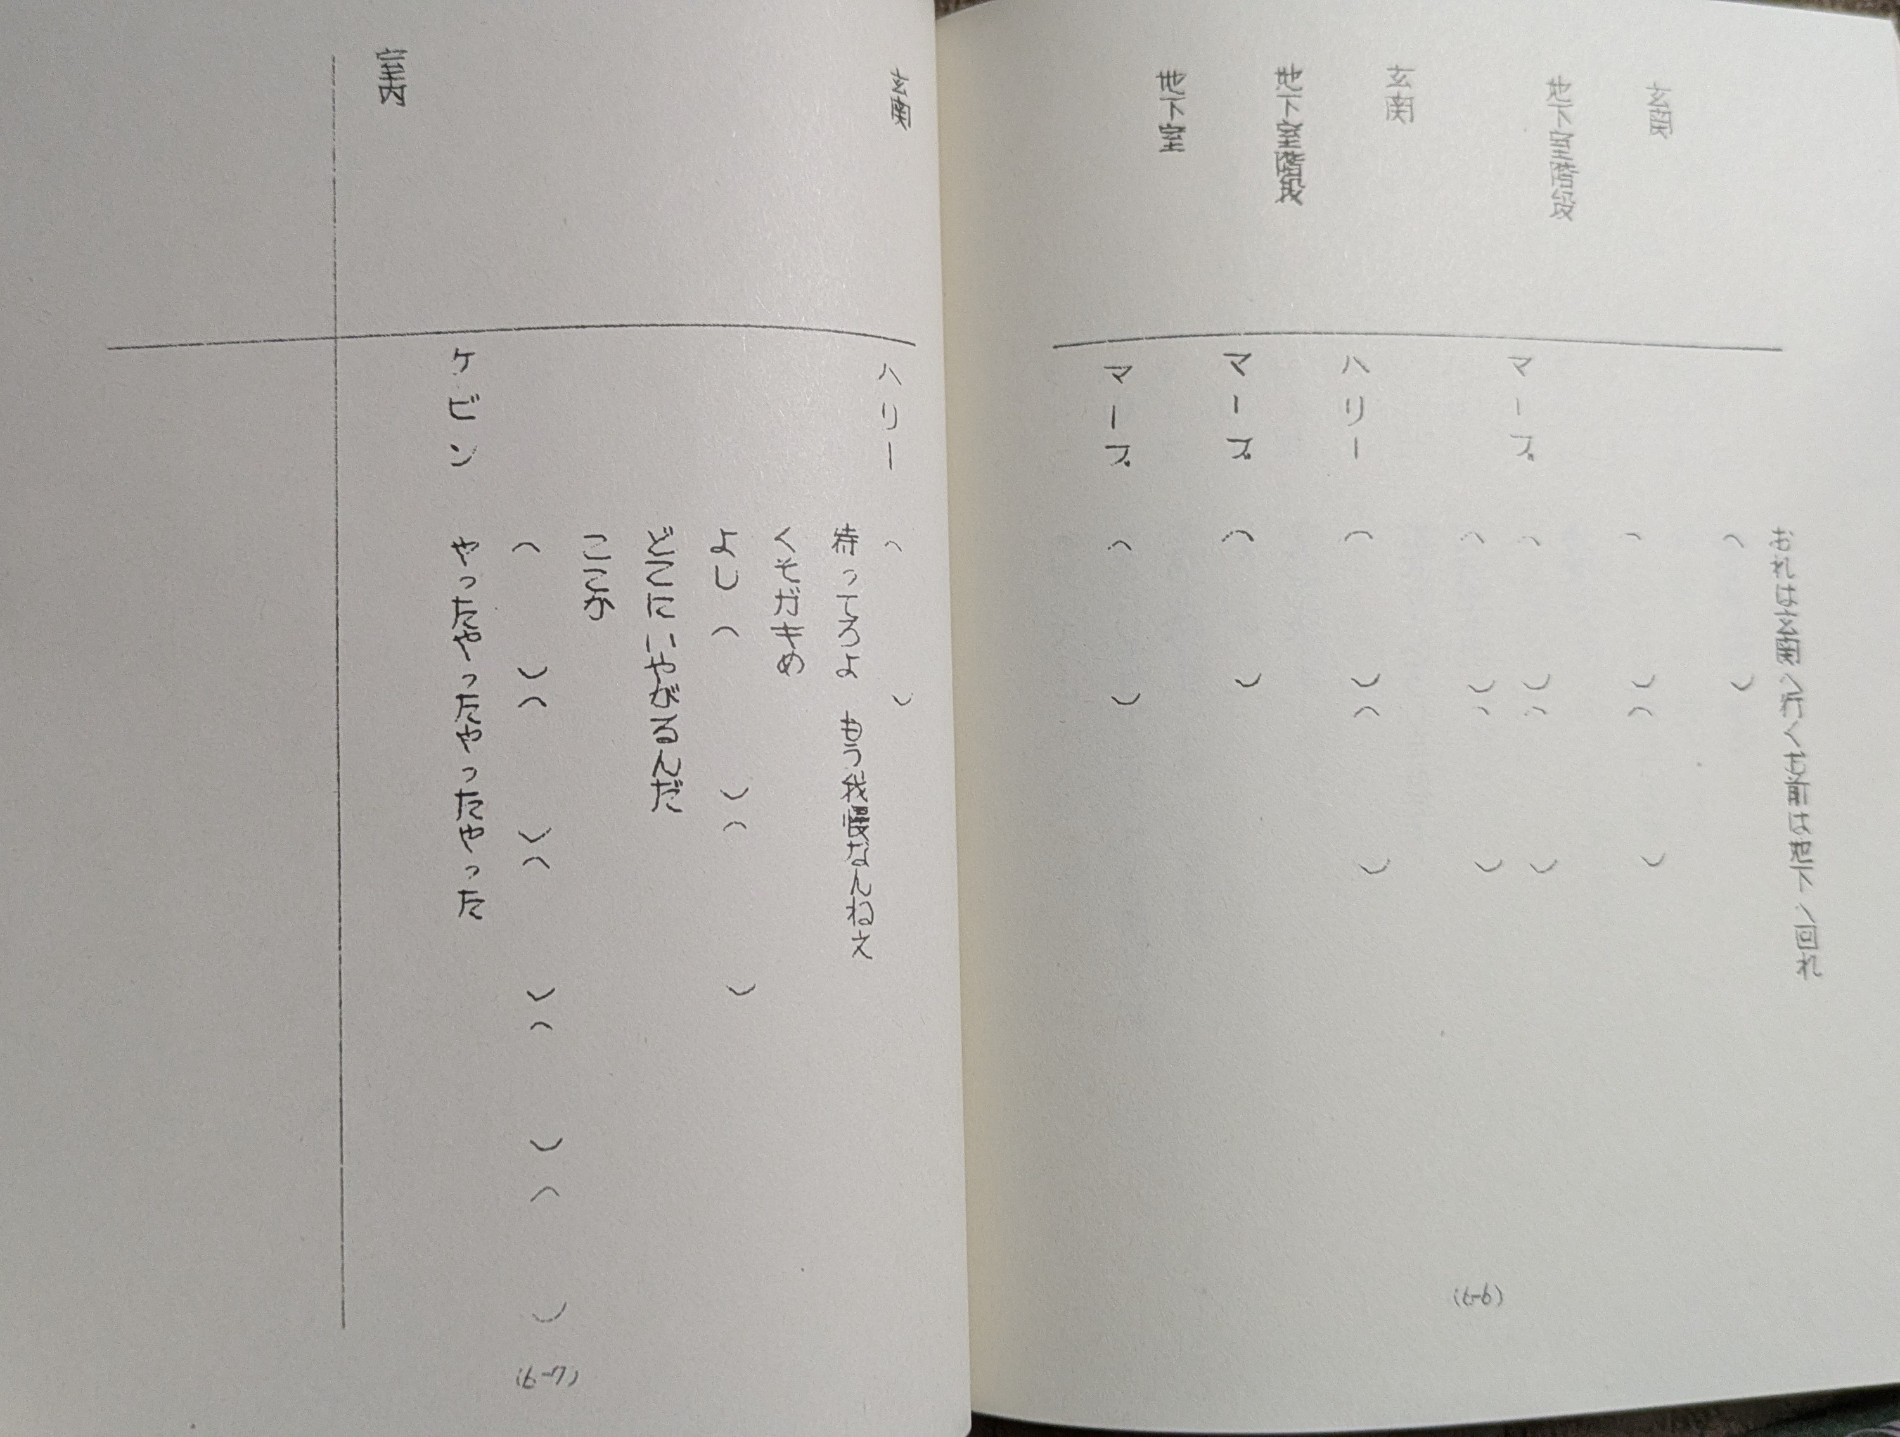 おれは玄関へ行くお前は地下へ回れ
(　　　)
玄関
(　　　)(　　　)
地下室階段
マーブ(　　　)(　　　)
(　　　)(　　　)
玄関
ハリー(　　　)(　　　)
地下室階段
マーブ(　　　)
地下室
マーブ(　　　)
(6-6)
玄関
ハリー(　　　)
待ってろよ　もう我慢なんねえ
くそガキめ
よし(　　　)(　　　)
どこにいやがるんだ
ここか
(　　　)(　　　)(　　　)(　　　)(　　　)
ケビン　やったやったやったやった
室内
(6-7)